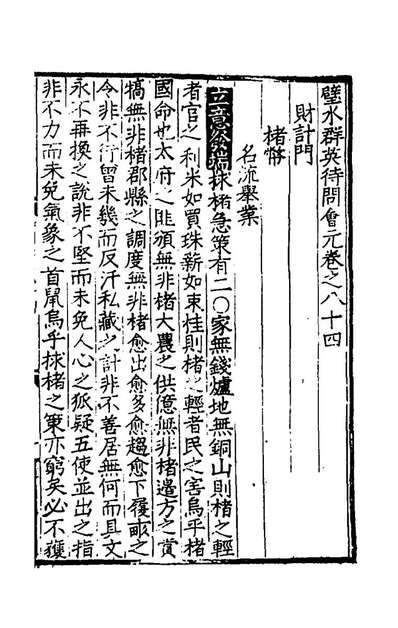 璧水群英待問會元卷之八十四
財計門
楮幣
名流舉業
立意發端捄楮急策有二〇家無錢爐地無銅山則楮之輕
者官之利米如買珠薪如束桂則楮之輕者民之害烏乎楮
國命也太府之匪頒無非楮大農之供億無非楮邊方之賞
犒無非楮郡縣之調度無非楮愈出愈多愈趨愈下履畝之
令非不行曾未幾而反汗私藏之計非不善居無何而具文
永不再換之說非不堅而未免人心之狐疑五使並出之指
非不力而未免氣象之首鼠烏乎捄楮之策亦窮矣必不獲